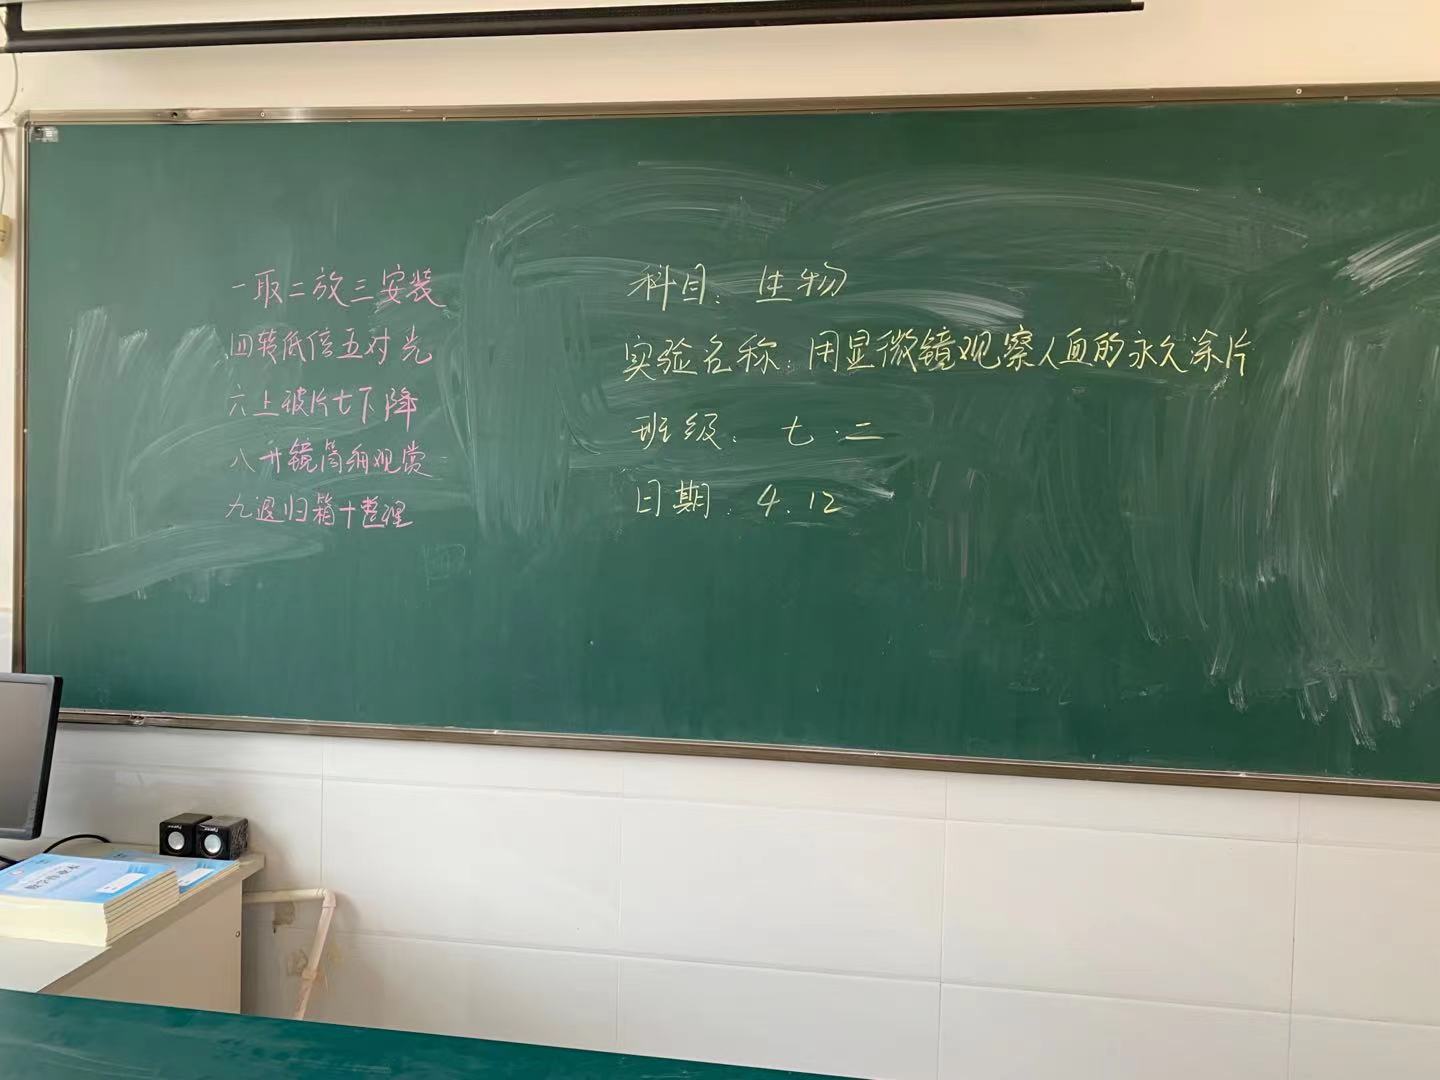 一取二放三安装
四转低倍五对光
六上玻片七下降
八升镜筒细观赏
九退归箱十整理
科目：生物
实验名称：用显微镜观察人血的永久涂片
班级：七.二
日期：4.12
数学作业本